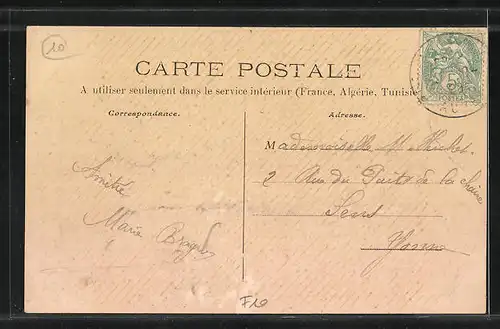 10
CARTE POSTALE
A utiliser seulement dans le service intérieur (France, Algérie, Tunisie
Correspondance.
Adresse.
Mademoiselle M Michet
2 Rue du Puits de la chaîne
Sens
Yonne
Amitié
Marie
F10